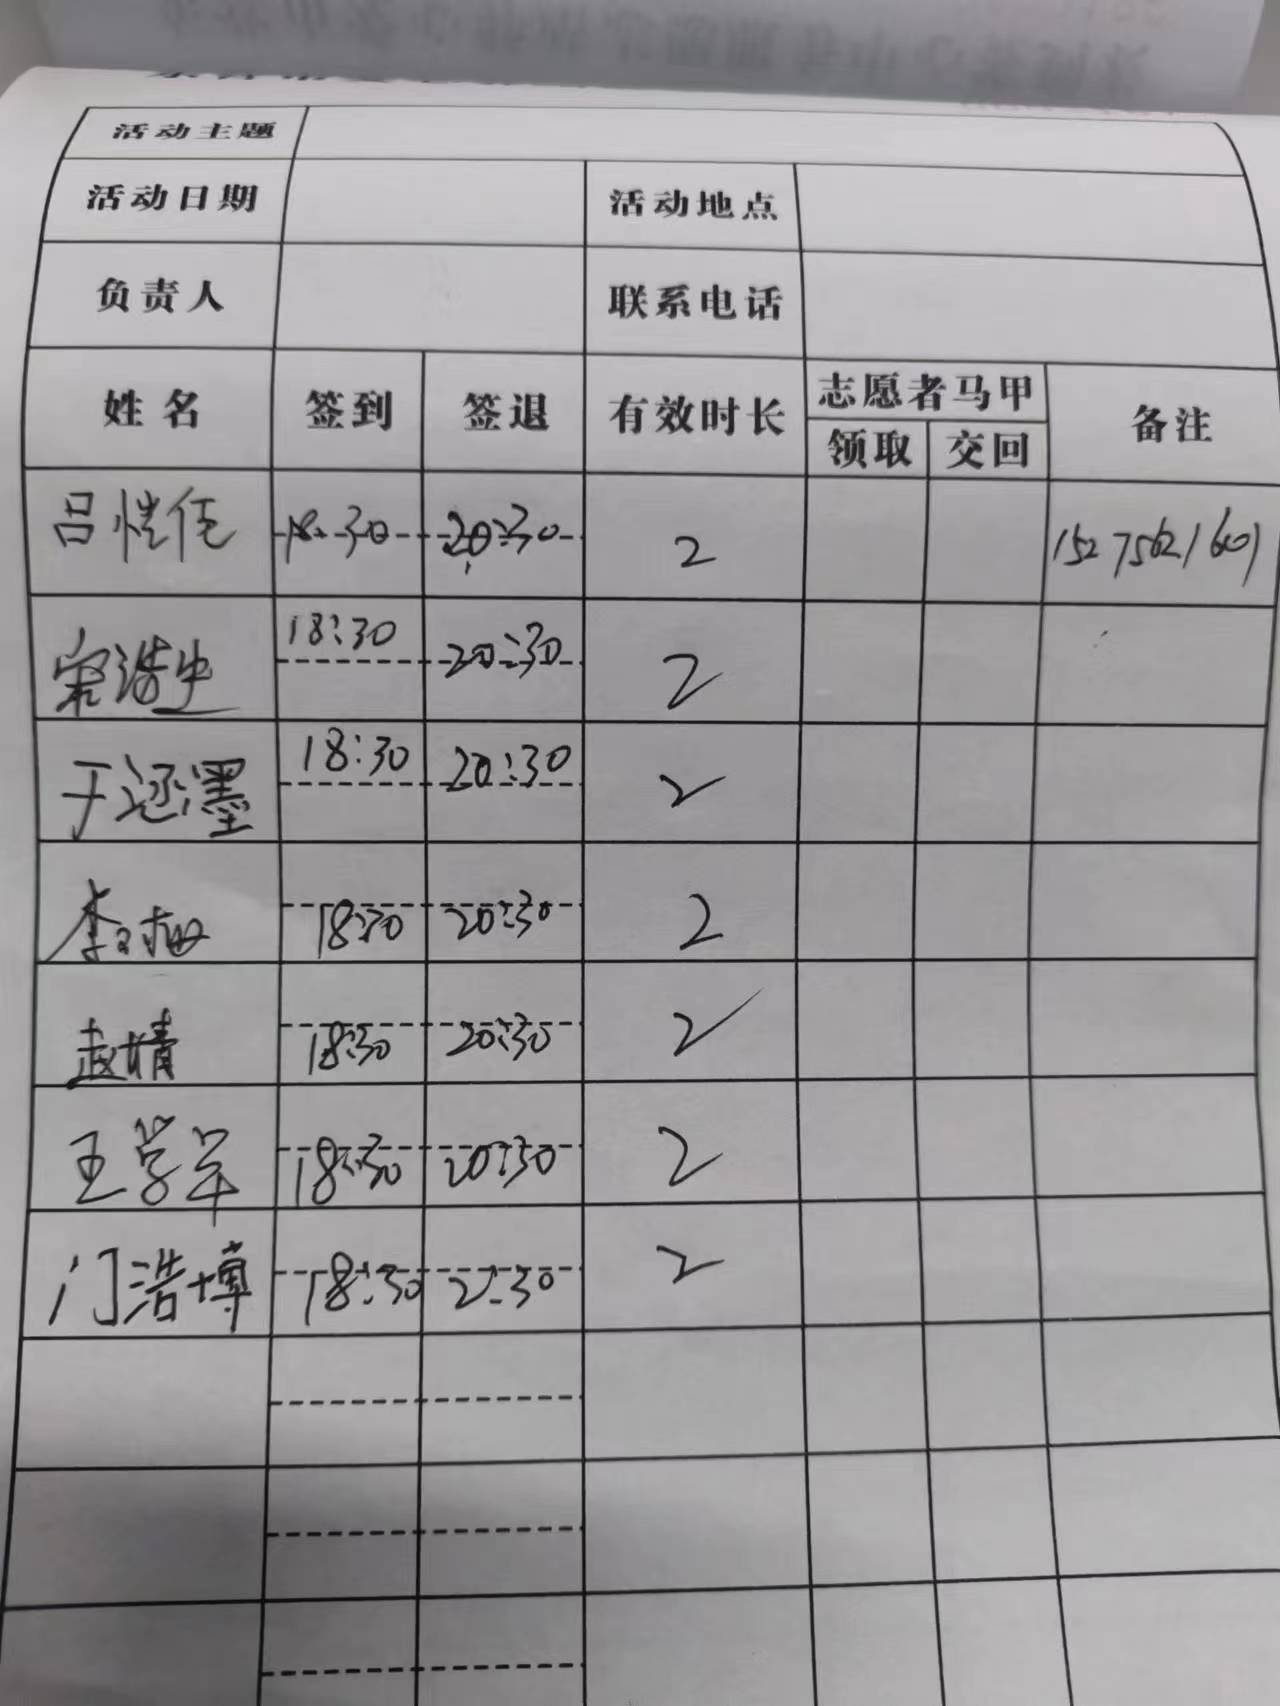 活动主题
活动日期 活动地点
负责人 联系电话
姓名 签到 签退 有效时长 志愿者马甲 备注
领取 交回
吕恺佳 18:30 20:30 2 15275621601
宋浩 18:30 20:30 2
于涵墨 18:30 20:30 2
李 梅 18:30 20:30 2
赵婧 18:30 20:30 2
王学军 18:30 20:30 2
门浩博 18:30 2:30 2